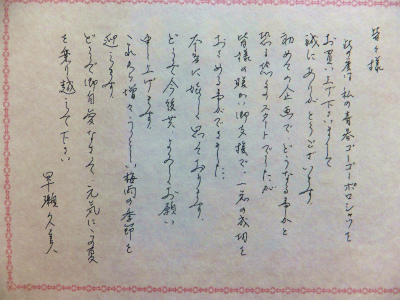 皆々様
此度は私の青春ゴーゴーポロシャツを
お買い上げ下さいまして
誠にありがとうございます
初めての企画で、どうなる事かと
恐る恐るスタートでしたが
皆様の暖かい御支援で、一応の成功を
おさめる事ができました…
本当に嬉しく思っております。
どうぞ今後共、よろしくお願い
申し上げます
これから増々うっとうしい梅雨の季節を
迎えます
どうぞ御自愛なさって、元気にこの夏
を乗り越えて下さい
早瀬久美